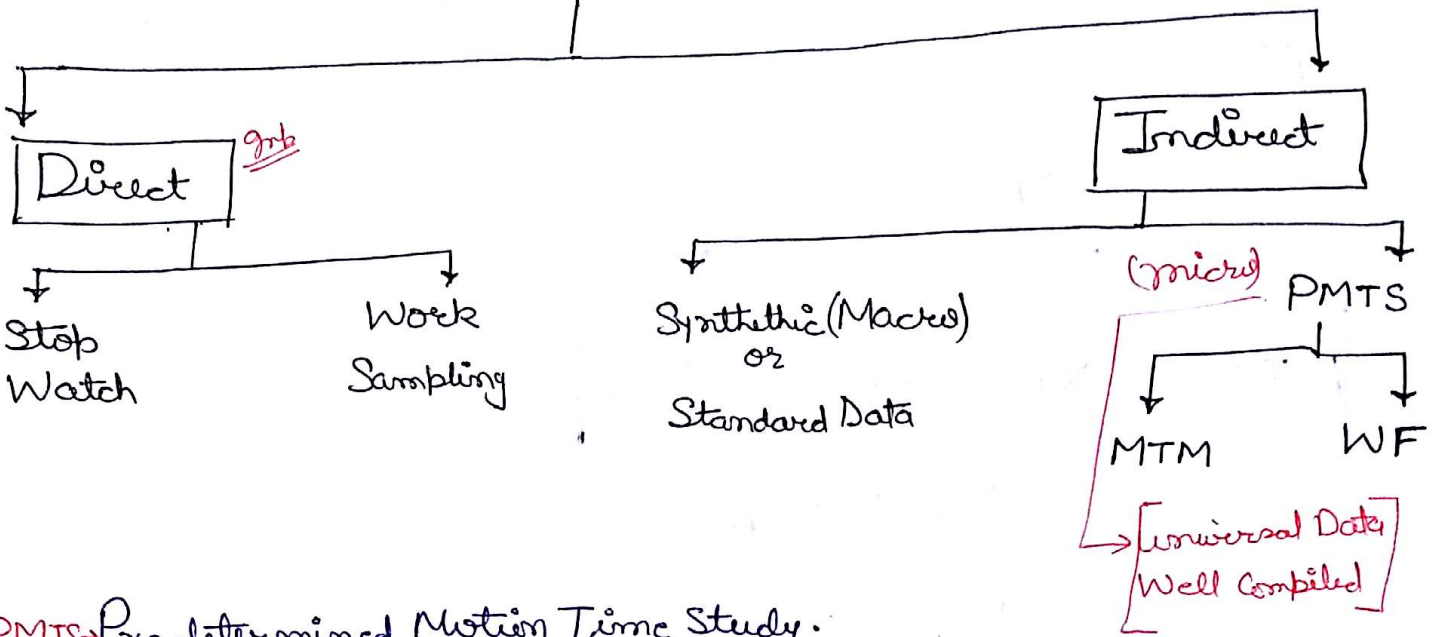 Direct
Imp
Indirect
Stop
Watch
Work
Sampling
Synthethic (Macro)
or
Standard Data
(micro)
PMTS
MTM
WF
[universal Data
Well Compiled]
PMTS → Pre determined Motion Time Study.